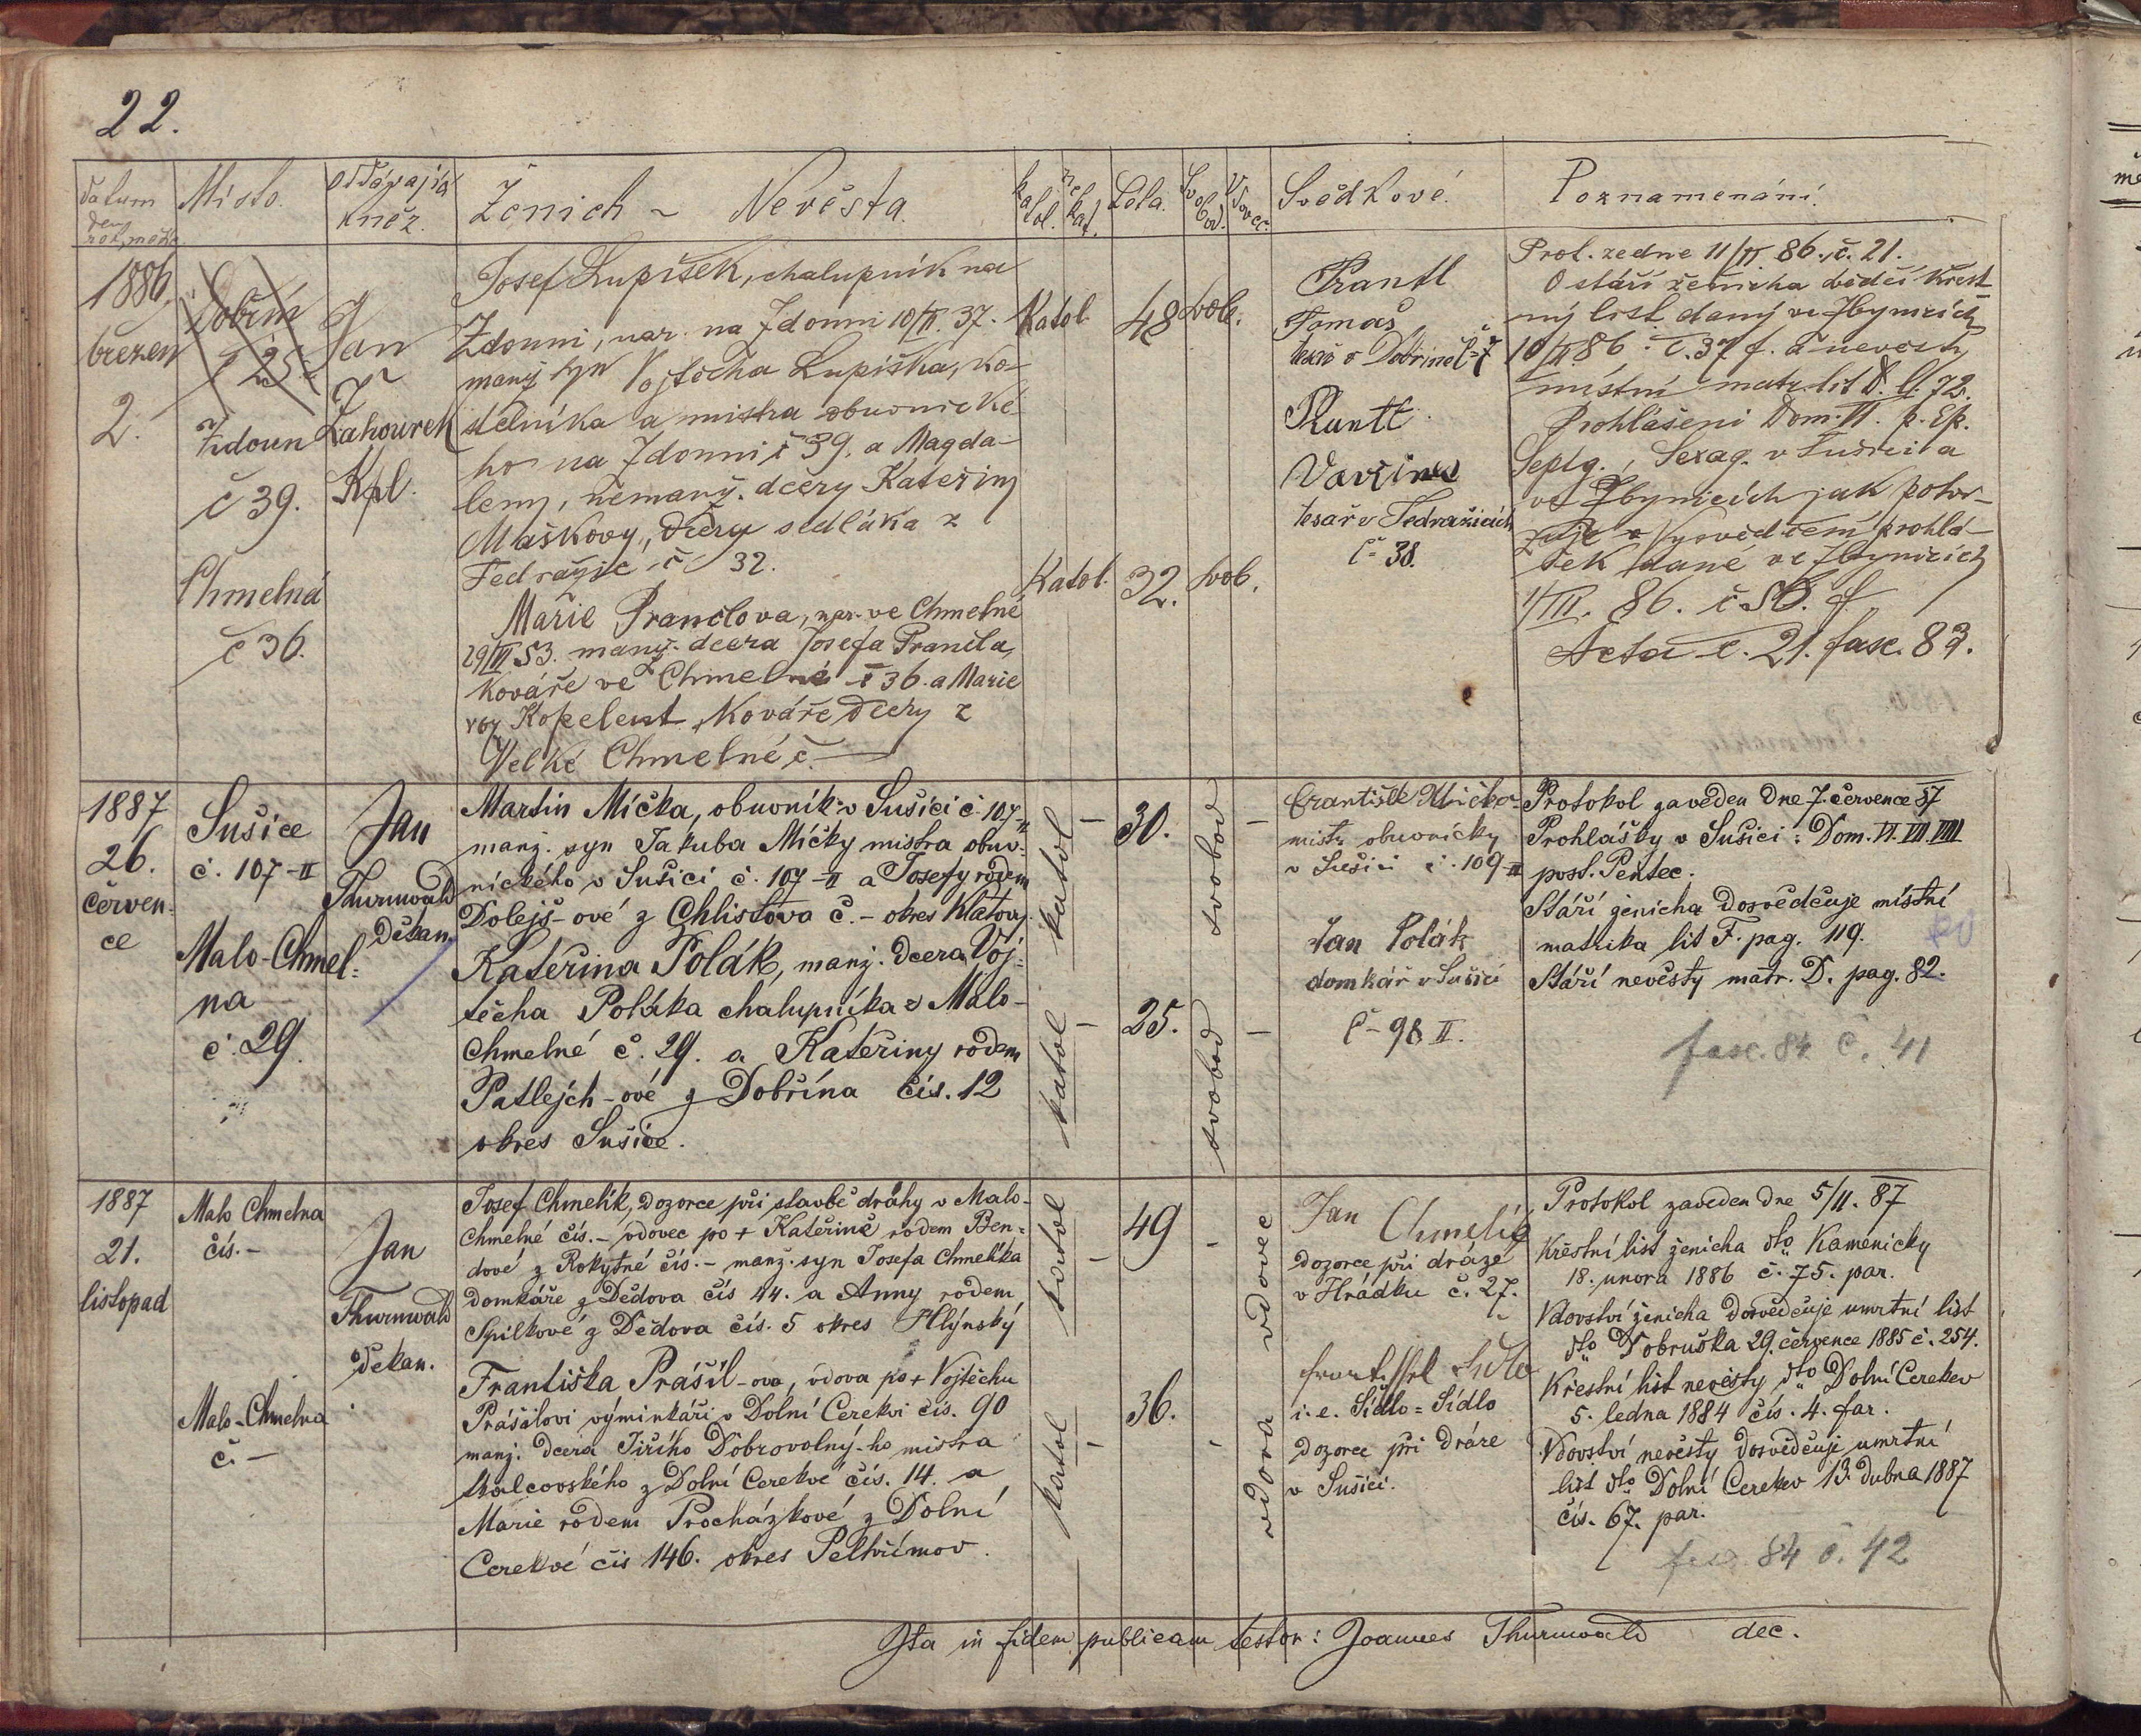 22.
Datum den rok, měsíc
Místo.
oddávající kněz.
Ženich ~ Nevěsta.
katol.
nekat.
Léta.
Svobod.
Vdovec
Svědkové.
Poznamenání.
1886.
březen
2.
Dobřín
č 25.
Zdoun
č 39.
Chmelná
č 36.
Jan
Zahourek
Kpl.
Josef Lupíšek, chalupník na
Zdouni, nar. na Zdouni 10/II. 37.
manž syn Vojtěcha Lupíška, ko-
delníka a mistra obuvnické-
ho na Zdouni č 39. a Magda-
leny, nemanž. dcery Kateřiny
Maškovy, dcery sedláka z
Tedražic č 32.
Marie Pranclova, nar. ve Chmelné
29/III 53. manž. dcera Josefa Prancla,
Kováře ve Chmelné č 36. a Marie
roz Kopelent, Kováře dcery z
Velké Chmelné č. —
Katol.
48
svob.
Katol.
32.
svob.
Prantl
Tomáš
tesař v Dobříně č 7
Prantl
Vavřinec
tesař v Tedražicích
č 38.
Prot. ze dne 11/II 86., č. 21.
O stáří ženicha svědčí křest
ný list daný ve Zbynicích
10/II 86. č. 37 f. a nevěsty
místní matr. lit D. fl. 72.
Prohlášení Dom. VI. p. Ep.
Septg., Sexag. v Sušici a
ve Zbynicích jak potvr-
zuje vysvědčení prohlá-
šek dané ve Zbynicích
1/III. 86. č 50. f
Acta č. 21. fasc. 83.
1887
26.
červen-
ce
Sušice
č. 107-II
Malo-Chmel-
na
č. 29
Jan
Thurnwald
Děkan.
Martin Míčka, obuvník v Sušici č. 107-II
manž. syn Jakuba Míčky mistra obuv-
nického v Sušici č. 107-II a Josefy rodem
Dolejš-ové z Chlistova č. - okres Klatovy.
Kateřina Polák, manž. dcera Voj-
těcha Poláka chalupníka z Malo-
Chmelné č. 29. a Kateřiny rodem
Patlejch-ové z Dobřína čís. 12
okres Sušice.
katol
-
30.
svobod
-
katol
-
25.
svobod
-
František Míčka
mistr obuvnický
v Sušici č. 109-II
Jan Polák
domkář v Sušici
č - 98 II.
Protokol zaveden dne 7. července 87
Prohlášky v Sušici: Dom. VI. VII. VIII
post. Pentec.
Stáří ženicha dosvědčuje místní
matrika lit F. pag. 119.
Stáří nevěsty matr. D. pag. 82.
fasc. 84 č. 41
1887
21.
listopad
Malo Chmelna
čís. -
Malo-Chmelna
č. -
Jan
Thurnwald
děkan.
Josef Chmelík, dozorce při stavbě dráhy v Malo-
Chmelné čís. - vdovec po + Kateřině rodem Ben-
dové z Rokytné čís. - manž. syn Josefa Chmelíka
domkáře z Dědova čís 44. a Anny rodem
Spilkové z Dědova čís. 5 okres Hlýnský
Františka Prášil-ova, vdova po + Vojtěchu
Prášilovi výminkáři v Dolní Cerekvi čís. 90
manž. dcera Jiřího Dobrovolný-ho mistra
tkalcovského z Dolní Cerekvé čís. 14. a
Marie rodem Procházkové z Dolní
Cerekvé čís 146. okres Pelhřimov.
katol
-
49
-
vdovec
katol
-
36.
-
vdova
Jan Chmelík
Dozorce při dráze
v Hrádku č. 27.
František Sidlo
i. e. Sídlo = Sídlo
Dozorce při dráze
v Sušici.
Protokol zaveden dne 5/11. 87
Křestní list ženicha dto Kamenicky
18. února 1886 č. 75. par.
Vdovství ženicha dosvědčuje umrtní list
dto Dobruška 29. července 1885 č. 254.
Křestní list nevěsty dto Dolní Cerekev
5. ledna 1884 čís. 4. far.
Vdovství nevěsty dosvědčuje umrtní
list dto Dolní Cerekev 13. dubna 1887
čís. 67. par.
fasc. 84 č. 42
Ita in fidem publicam testor: Joannes Thurnwald dec.